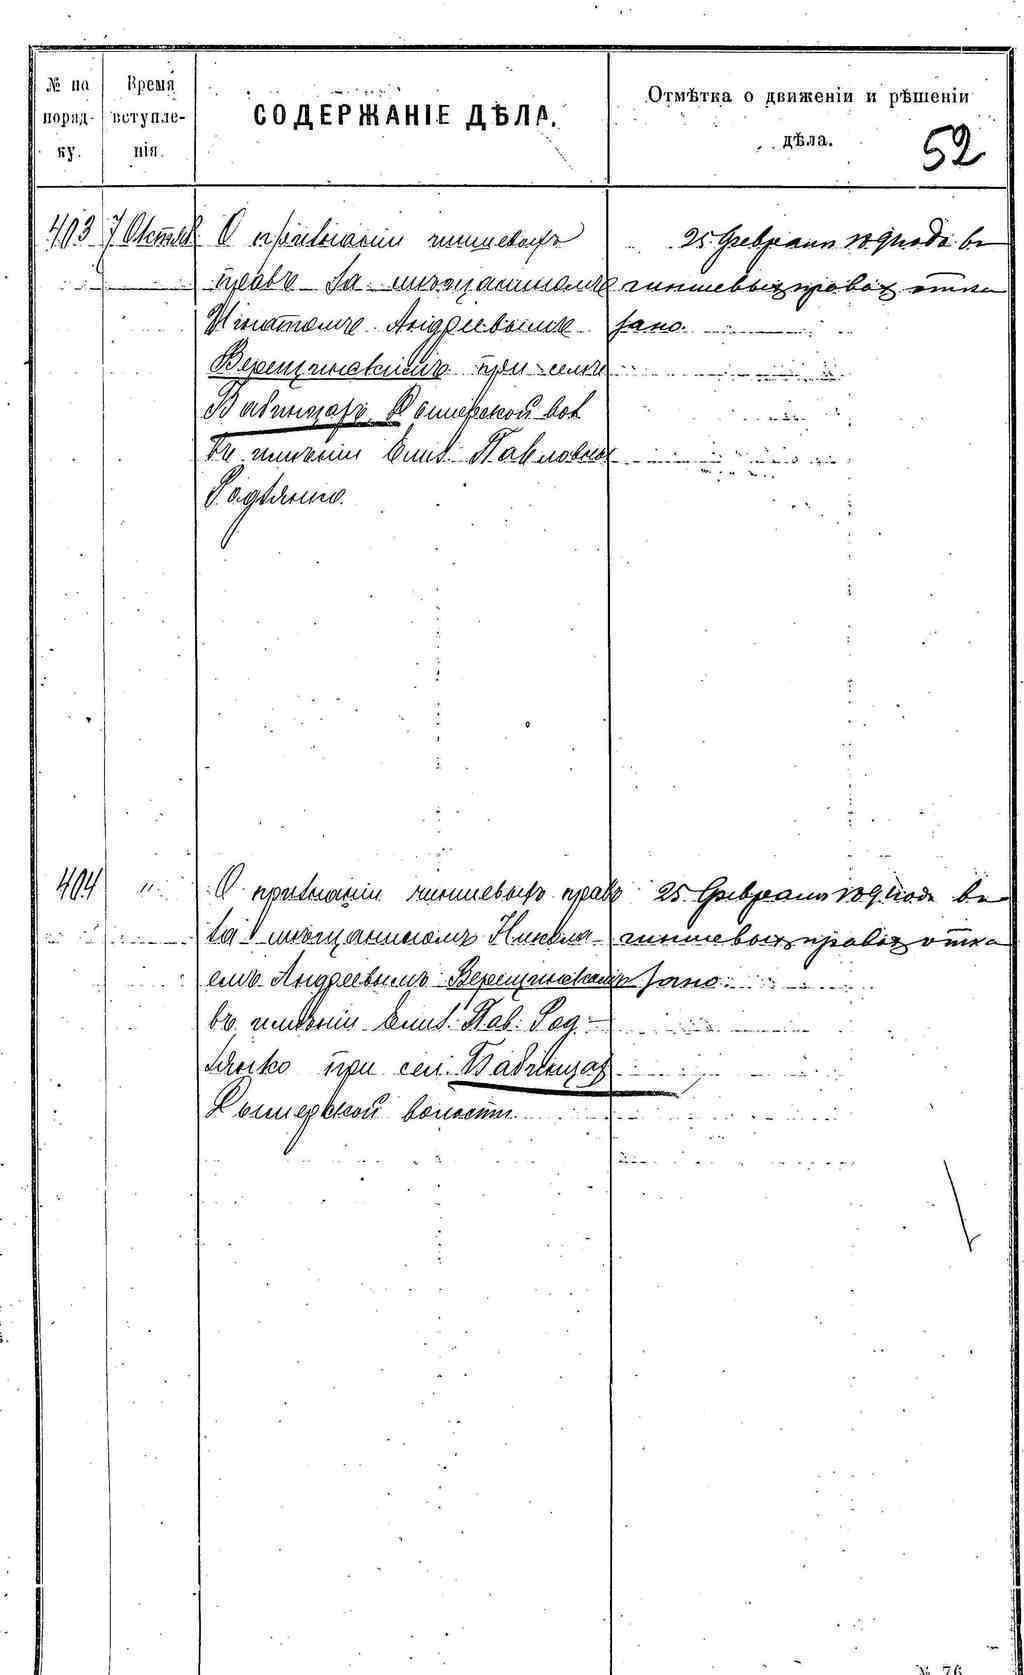 № по порядку.
Время вступленія.
СОДЕРЖАНІЕ ДѢЛА.
Отмѣтка о движеніи и рѣшеніи дѣла.
52
403 7 Октяб
О признаніи чиншевыхъ
правъ за мѣщаниномъ
Игнатомъ Андреевымъ
Верещинскимъ при селѣ
Бабинцахъ Дымерской вол
въ имѣніи Елиз. Павловны
Родзянко.
25 Февраля 1891 года въ
чиншевыхъ правах отка
зано.
404 "
О признаніи чиншевыхъ правъ
за мѣщаниномъ Никола-
емъ Андреевымъ Верещинскимъ
въ имѣніи Елиз. Пав. Род-
зянко при сел. Бабинцах
Дымерской волости
25 Февраля 1891 года въ
чиншевых правах отка
зано.
№ 76